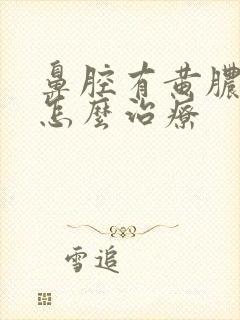 鼻腔有黄膿
怎麼治療
雪追